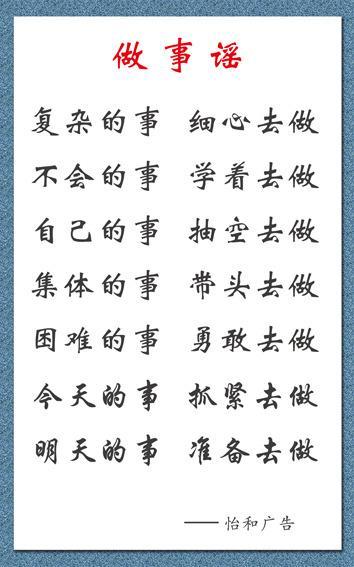 做事谣
复杂的事 细心去做
不会的事 学着去做
自己的事 抽空去做
集体的事 带头去做
困难的事 勇敢去做
今天的事 抓紧去做
明天的事 准备去做
——怡和广告